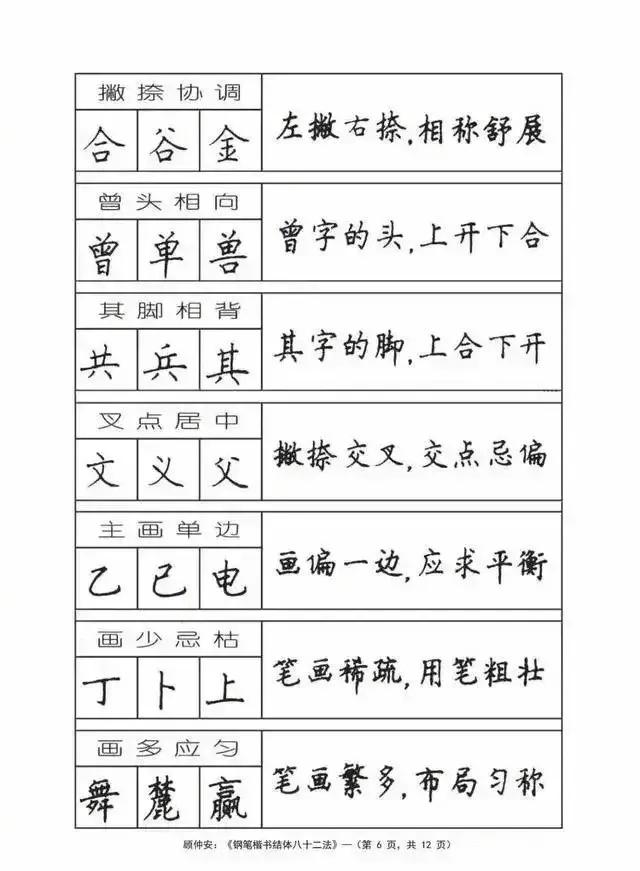 撇捺协调
合谷金
左撇右捺,相称舒展
曾头相向
曾单兽
曾字的头,上开下合
其脚相背
共兵其
其字的脚,上合下开
叉点居中
文义父
撇捺交叉,交点忌偏
主画单边
乙已电
画偏一边,应求平衡
画少忌枯
丁卜上
笔画稀疏,用笔粗壮
画多应匀
舞麓赢
笔画繁多,布局匀称
顾仲安:《钢笔楷书结体八十二法》—(第 6 页, 共 12 页)